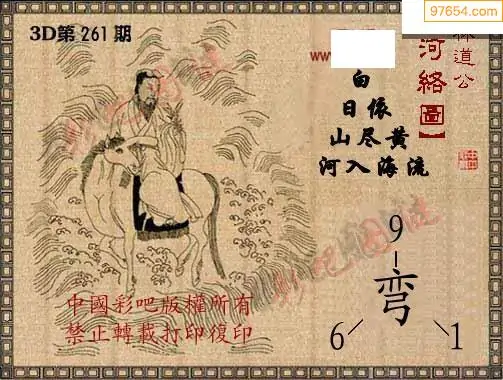 97654.com
3D第 261 期
林道公
河絡【圖】
www.
白
日依
山尽黄
河入海流
9
弯
6
1
中國彩吧版權所有
禁止轉載打印復印